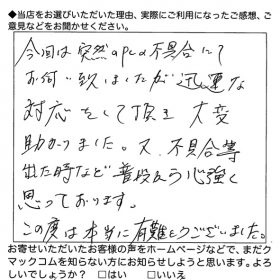 ◆当店をお選びいただいた理由、実際にご利用になったご感想、ご
意見などをお聞かせください。
今回は突然のPCの不具合にて
お伺い致しましたが迅速な
対応をして頂き大変
助かりました。又、不具合等
出た時など普段より心強く
思っております。
この度は本当に有難とうございました。
お寄せいただいたお客様の声をホームページなどで、まだク
マックコムを知らない方にお知らせしようと思います。よろ
しいでしょうか? □はい □いいえ